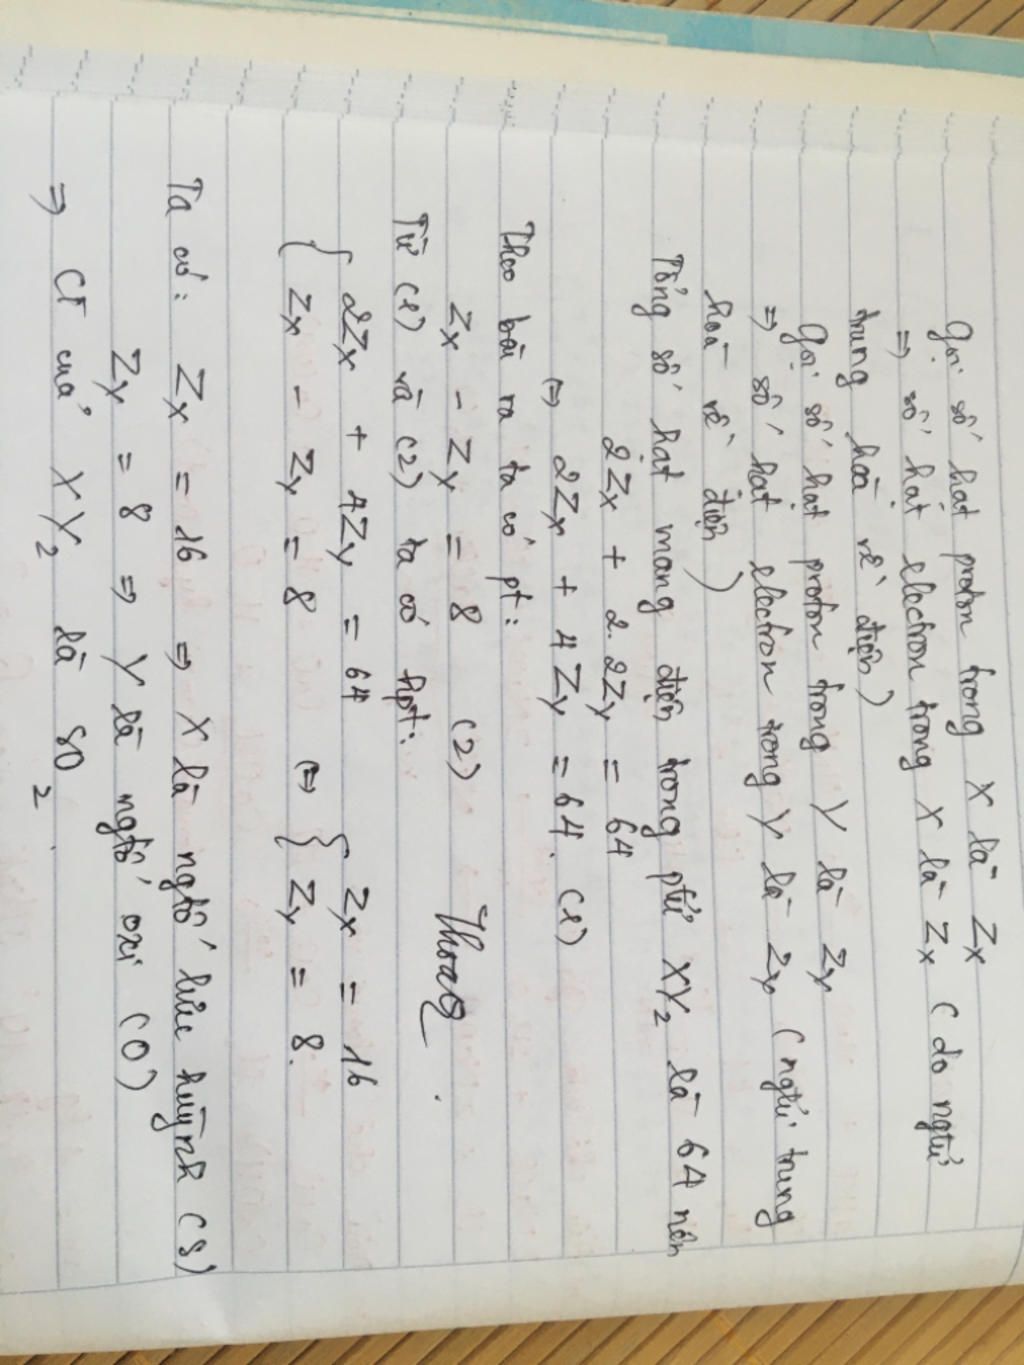 Gọi số hạt proton trong X là Zx
⇒ số hạt electron trong X là Zx (do ngtử
trung hoà về điện)
Gọi số hạt proton trong Y là Zy
⇒ số hạt electron trong Y là Zy (ngtử trung
hoà về điện)
Tổng số hạt mang điện trong ptử XY₂ là 64 nên
2Zx + 2.2Zy = 64
⇔ 2Zx + 4Zy = 64. (1)
Theo bài ra ta có pt:
Zx - Zy = 8 (2)
Từ (1) và (2) ta có hpt:
{ 2Zx + 4Zy = 64
Zx - Zy = 8 ⇔ { Zx = 16
Zy = 8.
Ta có: Zx = 16 ⇒ X là ngtố lưu huỳnh (S)
Zy = 8 ⇒ Y là ngtố oxi (O)
⇒ CT của XY₂ là SO₂.